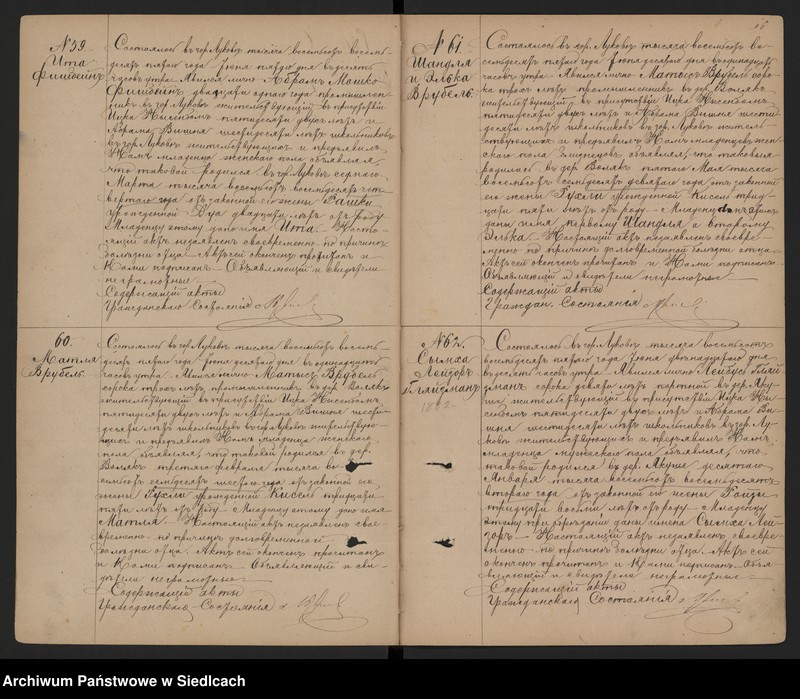 № 59.
Ита
Фишбейнъ
Состоялось въ гор. Луковѣ тысяча восемьсотъ восемь-
десятъ пятаго года Іюня дня въ десять
часовъ утра. Явился лично Абрамъ Мошко
Фишбейнъ двадцати одного года промышлен-
никъ въ гор. Луковѣ жительствующій въ присутствіи
Ицка пятидесяти двухъ лѣтъ и
Абрама Вишня шестидесяти лѣтъ школьниковъ
въ гор. Луковѣ жительствующихъ и предъявилъ
Намъ младенца женскаго пола объявляя,
что таковой родился въ гор. Луковѣ
Марта тысяча восемьсотъ восемьдесятъ чет-
вертаго года отъ законной его жены Рашки
урожденной двадцати лѣтъ отъ роду
Младенцу этому дано имя Ита. Насто-
ящій актъ незаявленъ своевременно по причинѣ
болѣзни отца. Актъ сей оконченъ прочитанъ и
Нами подписанъ. Объявляющій и свидѣтели
неграмотные.
Содержащій акты
Гражданскаго Состоянія
60.
Матля
Врубель.
Состоялось въ гор. Луковѣ тысяча восемьсотъ восемь-
десятъ пятаго года Іюня девятаго дня въ одинадцать
часовъ утра. Явился лично Матысъ Врубель
сорока трехъ лѣтъ, промышленникъ въ дер. Волякъ
жительствующій въ присутствіи Ицка
пятидесяти двухъ лѣтъ и Абрама Вишня шести-
десяти лѣтъ школьниковъ въ гор. Луковѣ жительствую-
щихъ и предъявилъ Намъ младенца женскаго
пола объявляя, что таковой родился въ дер.
Волякъ третьяго февраля тысяча во-
семьсотъ семьдесятъ шестаго года отъ законной его
жены Рухли урожденной Киссель тридцати
пяти лѣтъ отъ роду. Младенцу этому дано имя
Матля. Настоящій актъ незаявленъ свое-
временно по причинѣ долговременной
болѣзни отца. Актъ сей оконченъ прочитанъ
и Нами подписанъ. Объявляющій и сви-
дѣтели неграмотные.
Содержащій акты
Гражданскаго Состоянія
16
№ 61.
Шандля
и Эльва
Врубель.
Состоялось въ гор. Луковѣ тысяча восемьсотъ во-
семьдесятъ пятаго года Іюня девятаго дня въ одинадцать
часовъ утра. Явился лично Матысъ Врубель соро-
ка трехъ лѣтъ промышленникъ въ дер. Волякъ
жительствующій въ присутствіи Ицка
пятидесяти двухъ лѣтъ и Абрама Вишня шести-
десяти лѣтъ школьниковъ въ гор. Луковѣ житель-
ствующихъ и предъявилъ Намъ младенцевъ жен-
скаго пола близнецовъ, объявляя, что таковыя
родились въ дер. Волякъ пятаго Мая тысяча
восемьсотъ семьдесятъ девятаго года отъ законной
его жены Рухли урожденной Кисель трид-
цати пяти лѣтъ отъ роду. Младенцамъ этимъ
даны имена первому Шандля а второму
Эльва. Настоящій актъ незаявленъ своевре-
менно по причинѣ долговременной болѣзни отца.
Актъ сей оконченъ прочитанъ и Нами подписанъ.
Объявляющій и свидѣтели неграмотные
Содержащій акты
Граждан. Состоянія
№ 62.
Сымха
Лейзоръ
Гляйзманъ
1882
Состоялось въ гор. Луковѣ тысяча восемьсотъ
восемьдесятъ пятаго года Іюня двѣнадцатаго дня
въ десять часовъ утра. Явился лично Лейзоръ Гляй-
зманъ сорока девяти лѣтъ портной въ дер. Аку-
ша жительствующій въ присутствіи Ицка
пятидесяти двухъ лѣтъ и Абрама Ви-
шня шестидесяти лѣтъ школьниковъ въ гор. Лу-
ковѣ жительствующихъ и предъявилъ Намъ
младенца мужескаго пола объявляя, что
таковой родился въ дер. Акуше десятаго
Января тысяча восемьсотъ восемьдесятъ
втораго года отъ законной его жены Ройзы
тридцати восьми лѣтъ отъ роду. Младенцу
этому при обрѣзаніи даны имена Сымха Лей-
зоръ. Настоящій актъ незаявленъ своевре-
менно по причинѣ болѣзни отца. Актъ сей
оконченъ прочитанъ и Нами подписанъ. Объя-
вляющій и свидѣтели неграмотные.
Содержащій акты
Гражданскаго Состоянія
Archiwum Państwowe w Siedlcach